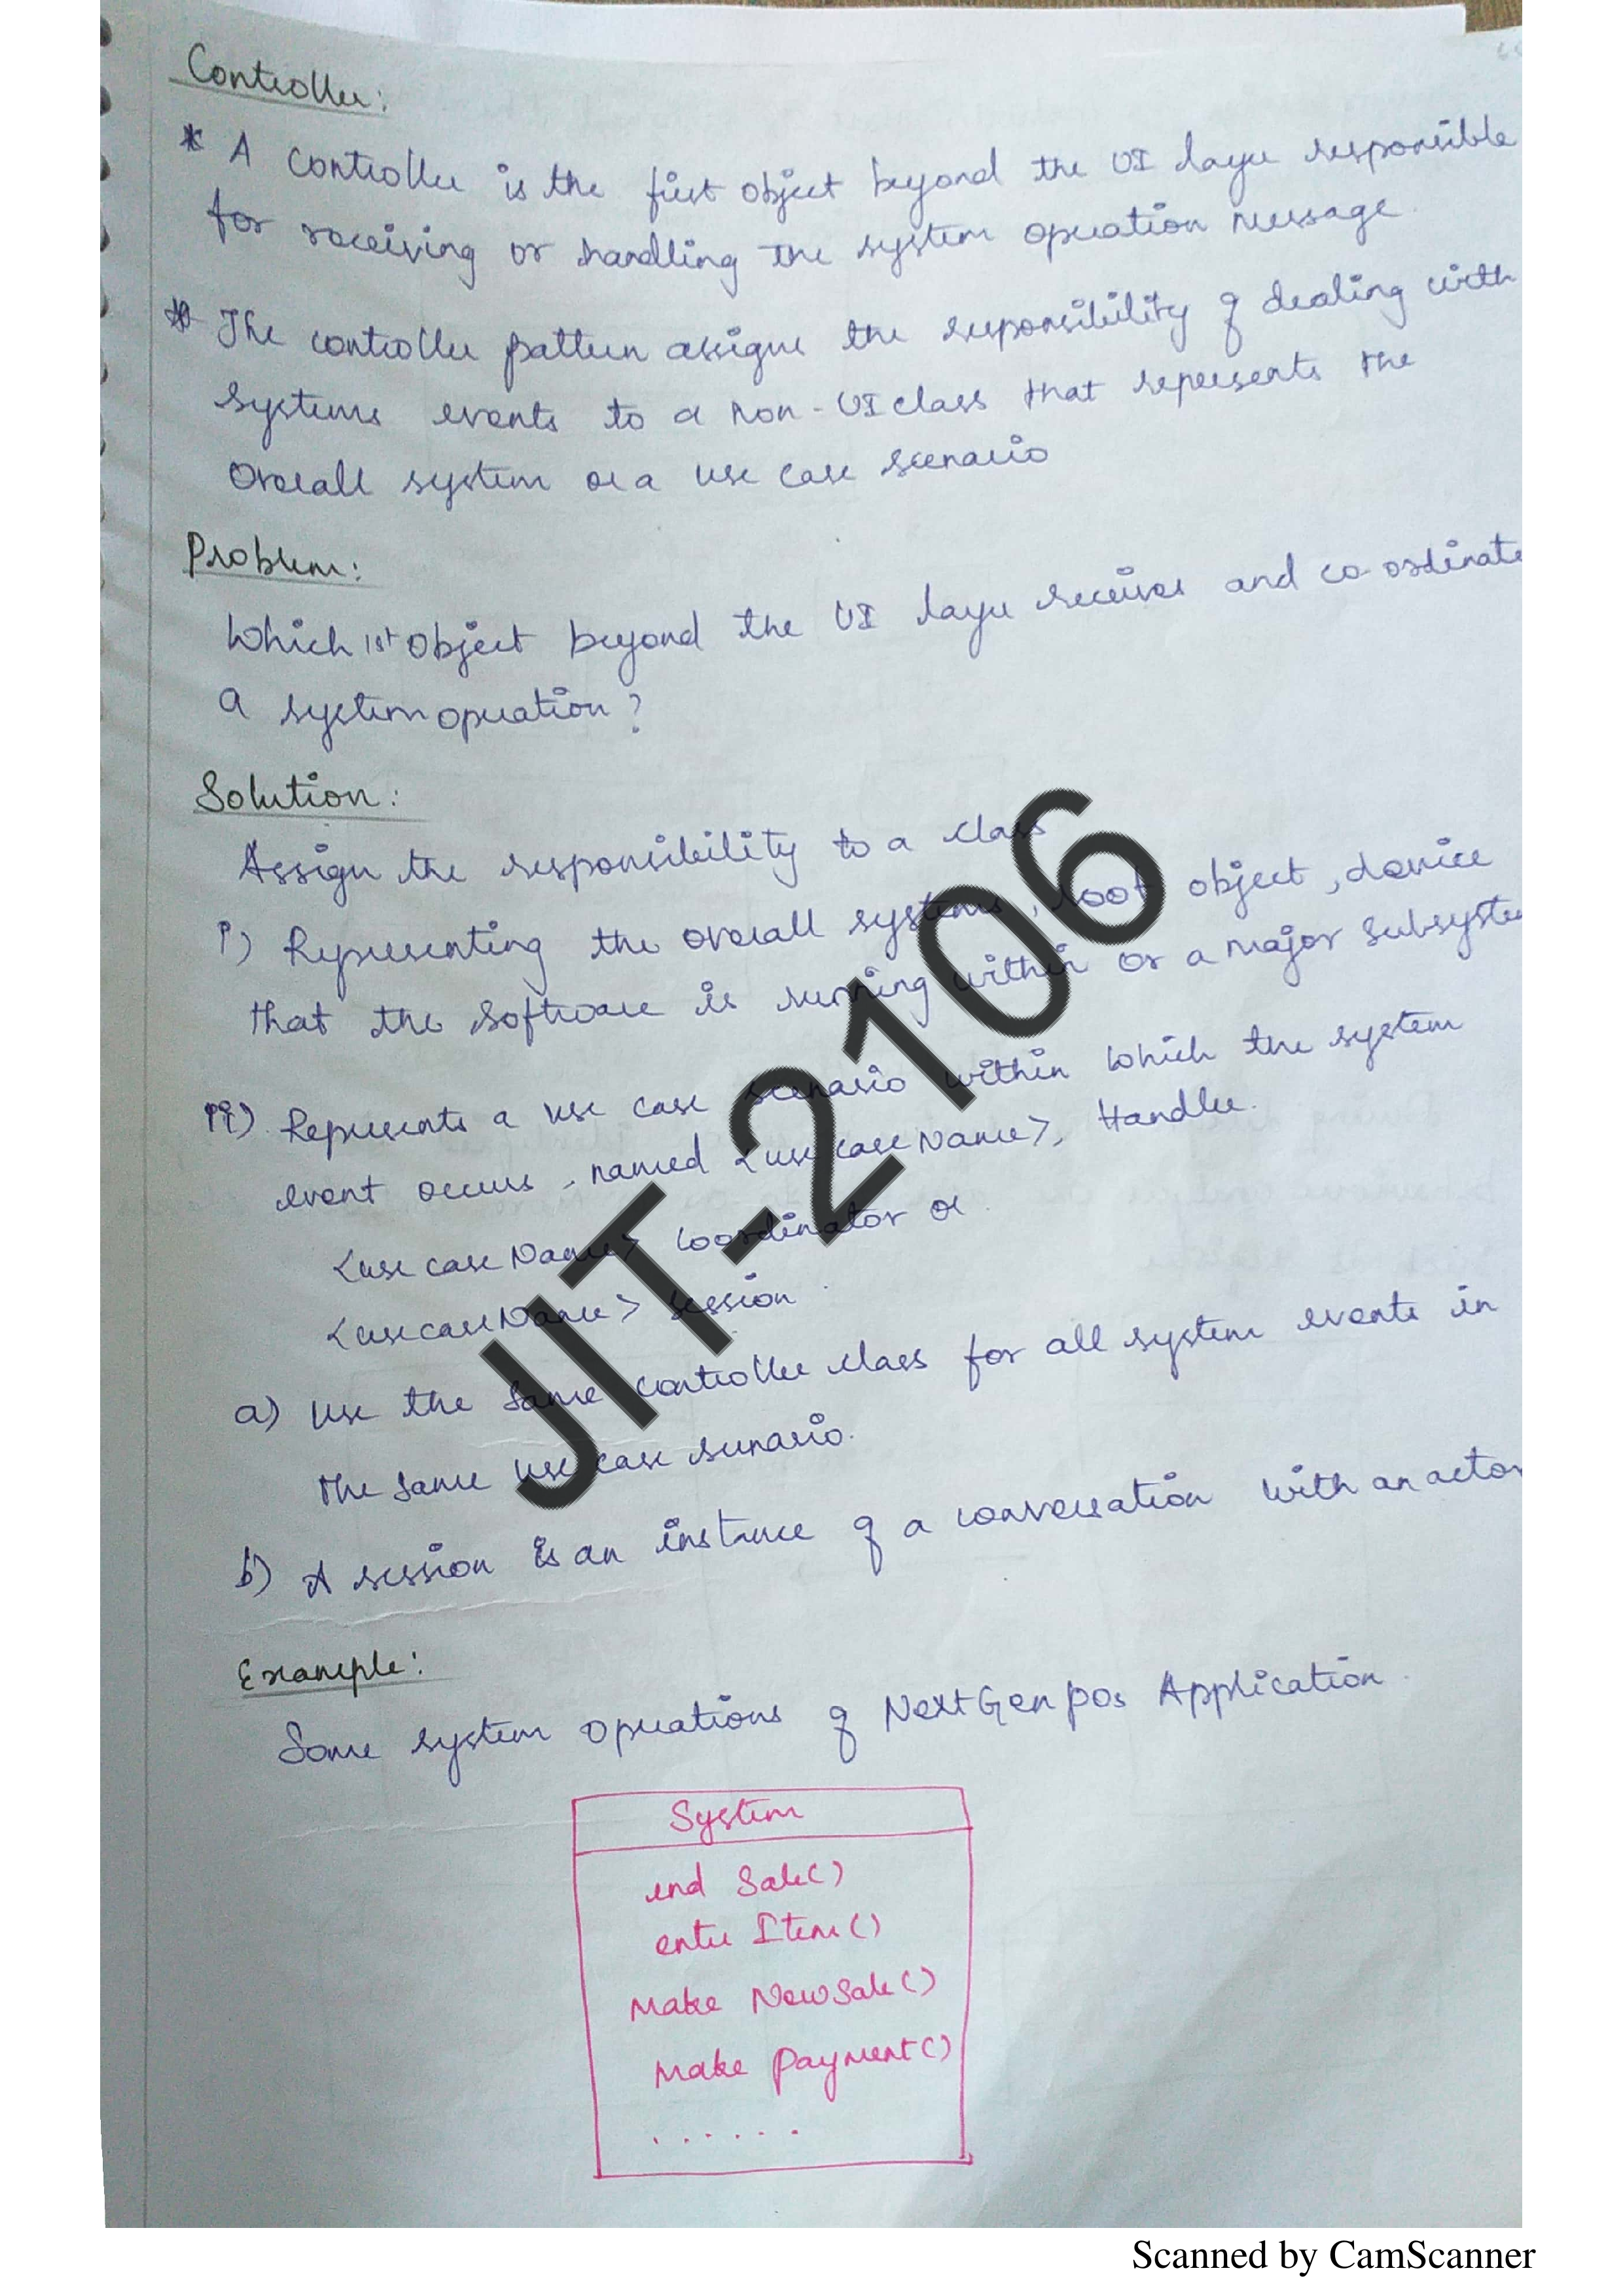 Controller:
* A controller is the first object beyond the UI layer responsible
for receiving or handling the system operation message.
* The controller pattern assigns the responsibility of dealing with
systems events to a non-UI class that represents the
Overall system or a use case scenario
Problem:
Which 1st object beyond the UI layer receives and co-ordinate
a system operation?
Solution:
Assign the responsibility to a class
i) Representing the overall systems, root object, device
that the software is running within or a major subsyste
ii) Represents a use case scenario within which the system
event occurs, named <use case Name>, Handler.
<use case Name> coordinator or
<usecaseName> session.
a) Use the same controller class for all system events in
the same use case scenario.
b) A session is an instance of a conversation with an actor
Example:
Some system operations of NextGen pos Application.
System
end Sale()
enter Item()
Make NewSale()
Make payment()
......
JIT-2106
Scanned by CamScanner